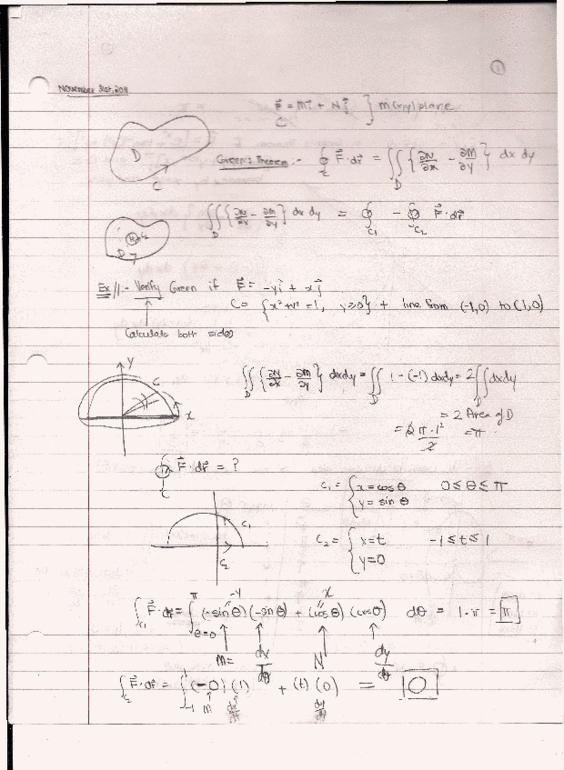 ①
November 21st, 2011
F⃗ = Mi⃗ + Nj⃗ } in (x,y) plane
D
C
Green's Theorem :- ∮_C F⃗·dr⃗ = ∬_D {∂N/∂x - ∂M/∂y} dx dy
∬_D {∂N/∂x - ∂M/∂y} dx dy = ∮_C₁ - ∮_C₂ F⃗·dr⃗
D
Ex/1:- Verify Green if F⃗ = -yi⃗ + xj⃗
C = {x²+y²=1, y≥0} + line from (-1,0) to (1,0)
Calculate both sides
y
C
x
∬_D {∂N/∂x - ∂M/∂y} dxdy = ∬_D 1-(-1) dxdy = 2∬_D dxdy
= 2 Area of D
= 2 π·1²/2 = π
∮_C F⃗·dr⃗ = ?
C₁ = { x = cos θ 0 ≤ θ ≤ π
y = sin θ
C₁
C₂
C₂ = { x = t -1 ≤ t ≤ 1
y = 0
-y x
∫_C₁ F⃗·dr⃗ = ∫_θ=0^π (-sin θ)(-sin θ) + (cos θ)(cos θ) dθ = 1·π = π
M= dx/dθ N dy/dθ
∫_C₂ F⃗·dr⃗ = ∫_-1^1 (-0)(1) + (t)(0) = 0
M dx/dt dy/dt